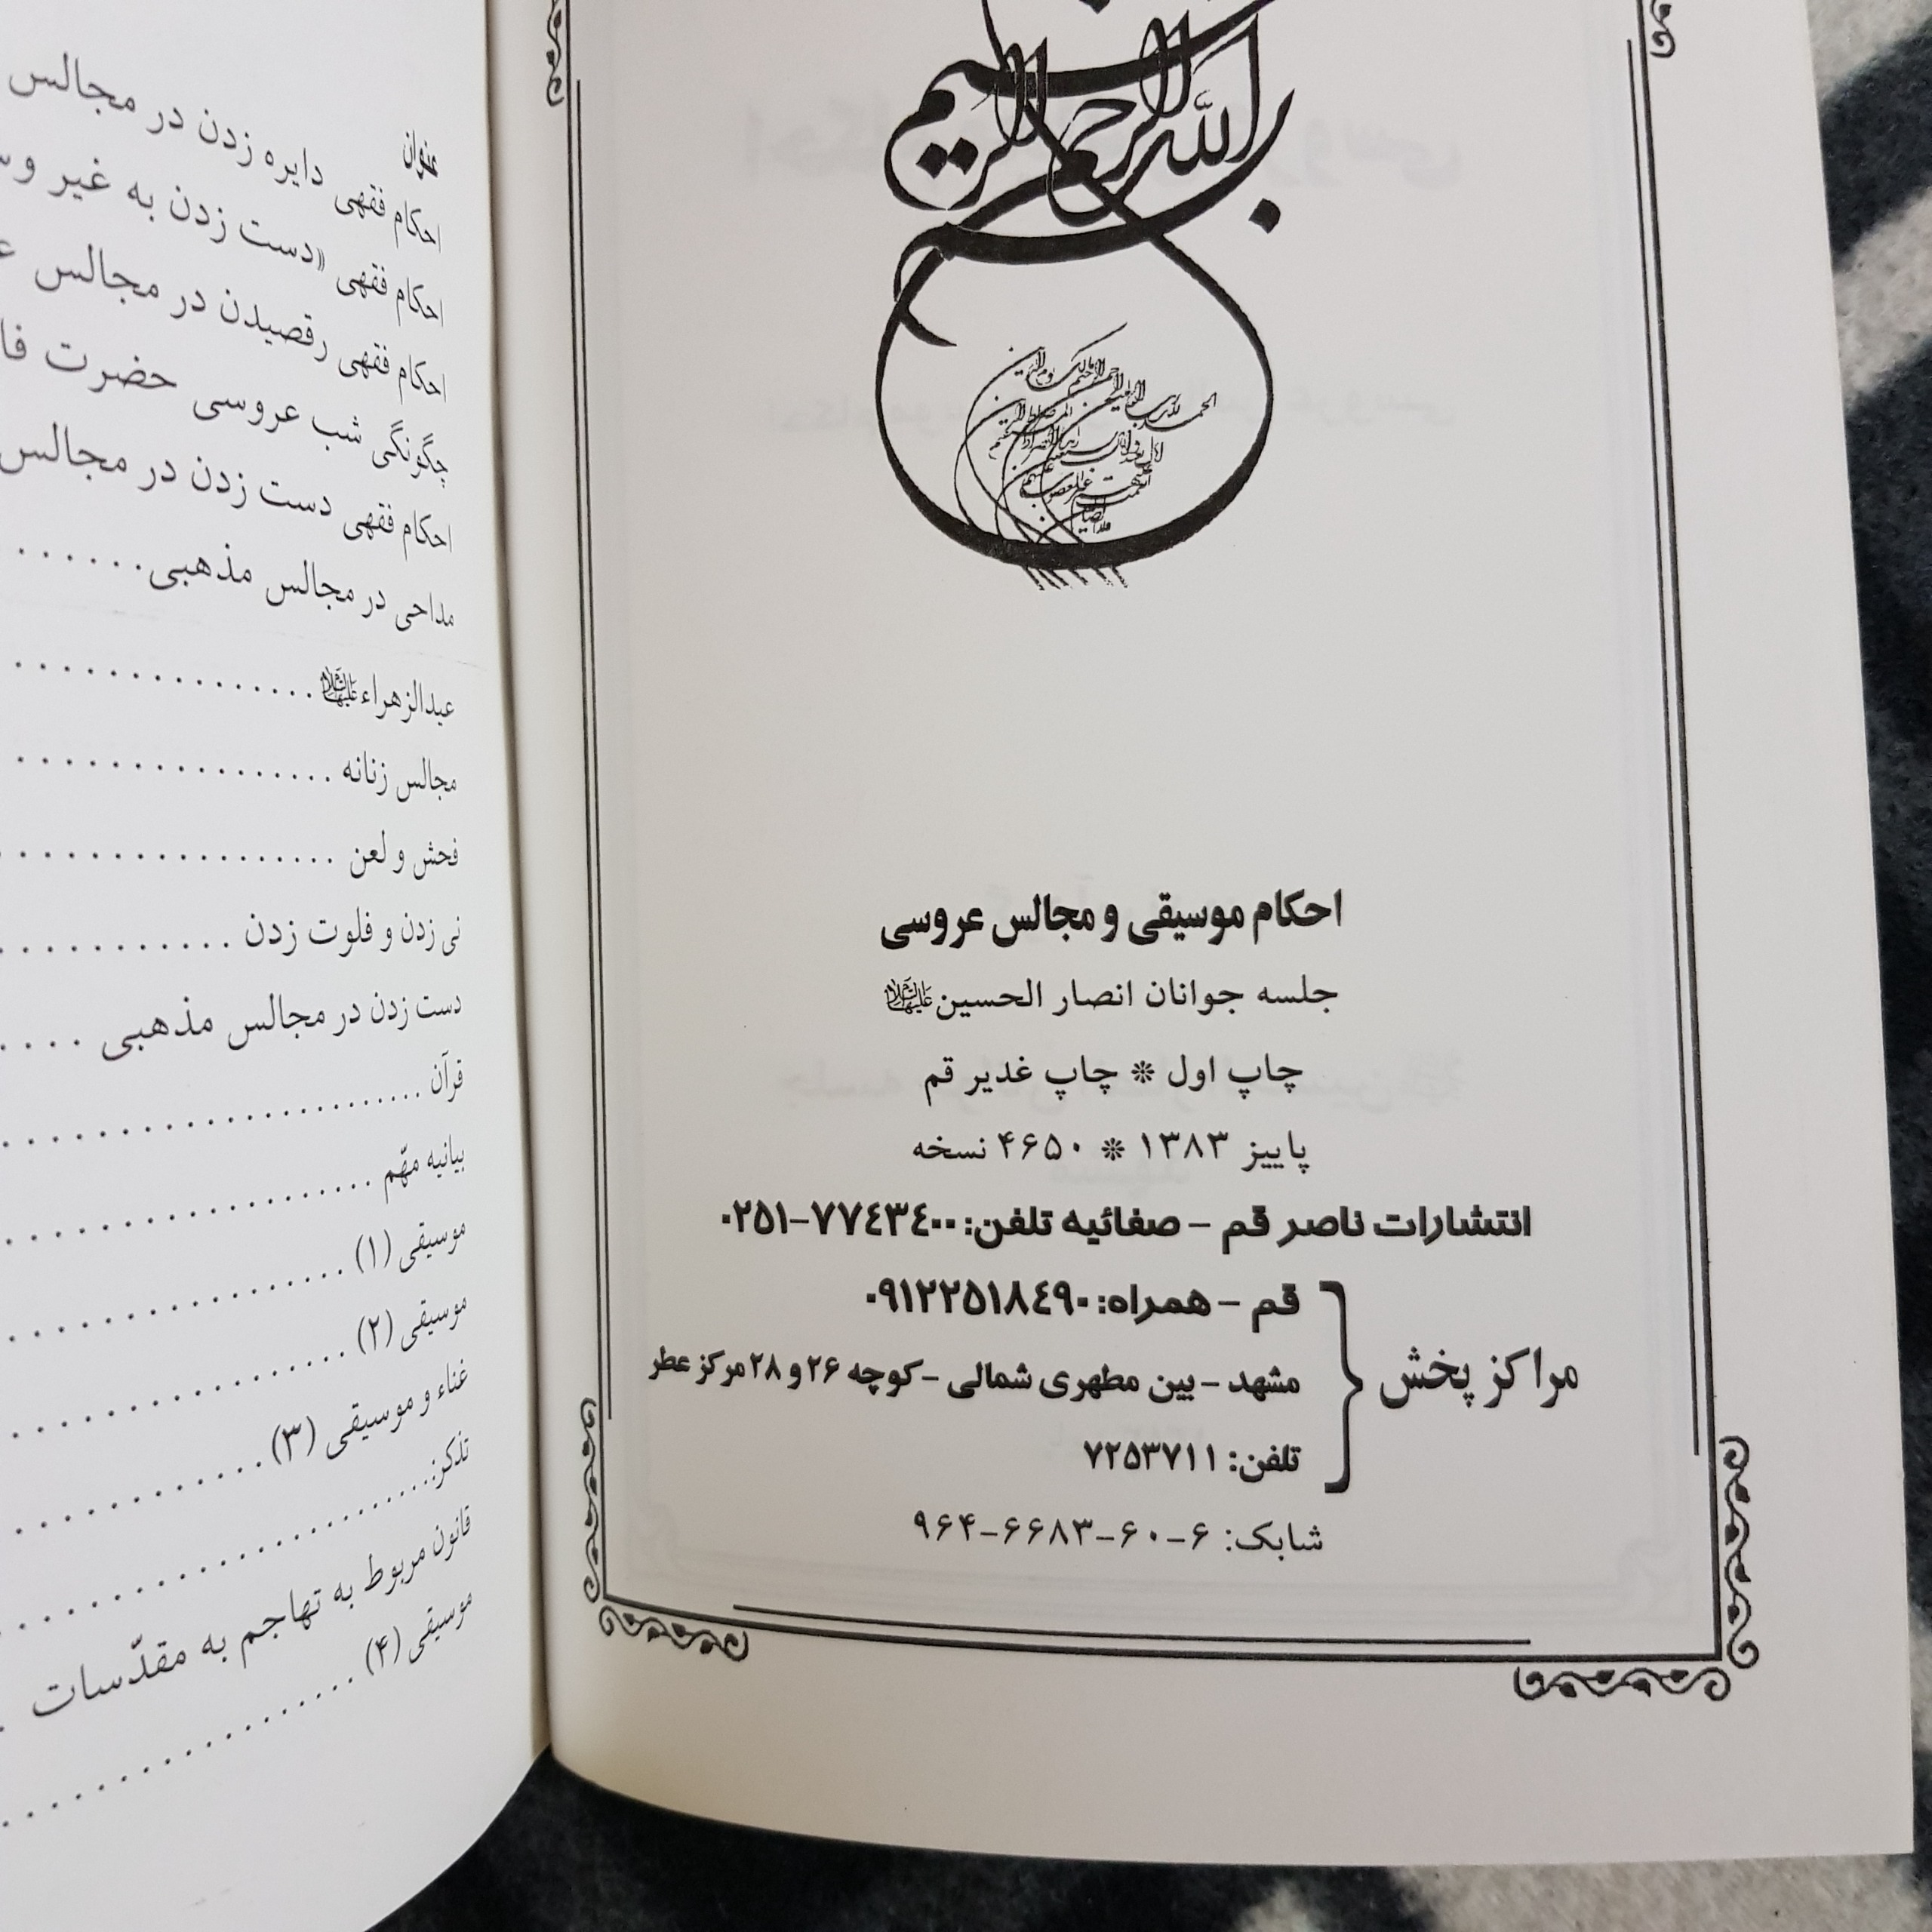 بسم الله الرحمن الرحیم
احکام موسیقی و مجالس عروسی
جلسه جوانان انصار الحسین علیه‌السلام
چاپ اول * چاپ غدیر قم
پاییز ۱۳۸۳ * ۴۶۵۰ نسخه
انتشارات ناصر قم – صفائیه تلفن: ۷۷۴۳۴۰۰-۰۲۵۱
مراکز پخش
قم – همراه: ۰۹۱۲۲۵۱۸۴۹۰
مشهد – بین مطهری شمالی – کوچه ۲۶ و ۲۸ مرکز عطر
تلفن: ۷۲۵۳۷۱۱
شابک: ۶-۶۰-۶۶۸۳-۹۶۴
عنوان
احکام فقهی دایره زدن در مجالس
احکام فقهی «دست زدن به غیر
احکام فقهی رقصیدن در مجالس
چگونگی شب عروسی حضرت
احکام فقهی دست زدن در مجالس
مداحی در مجالس مذهبی......
عیدالزهراء علیهاالسلام...............
مجالس زنانه................
فحش و لعن .................
نی زدن و فلوت زدن ............
دست زدن در مجالس مذهبی ....
قرآن .......................
بیانیه مهّم .....................
موسیقی (۱) ...................
موسیقی (۲) ...................
غناء و موسیقی (۳)..............
تذکر:.......................
قانون مربوط به تهاجم به مقدّسات .
موسیقی (۴) ....................